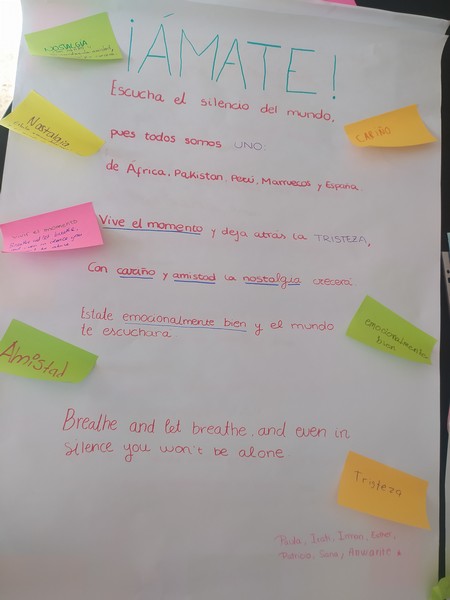 ¡ÁMATE!
NOSTALGIA
Escucha el silencio del mundo,
Nostalgia
CARIÑO
pues todos somos UNO:
de África, Pakistan, Perú, Marruecos y España.
Vive el momento y deja atrás la TRISTEZA,
Vive el momento
Breathe and let breathe,
Con cariño y amistad la nostalgia crecerá;
Estate emocionalmente bien y el mundo
te escuchará
emocionalmente
bien
Amistad
Breathe and let breathe, and even in
silence you won't be alone
Tristeza
Irati, Imran, Esther,
Patricia, Sara y Amarante